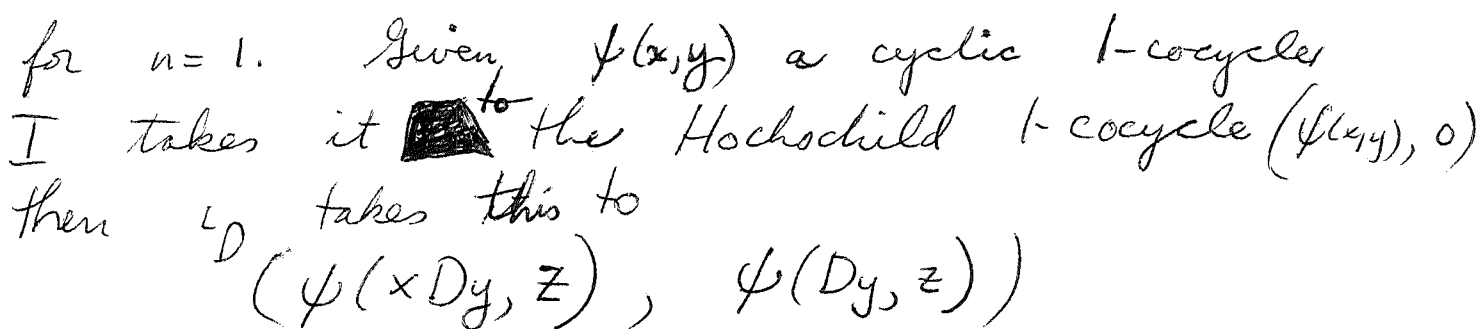 for n=1. Given ψ(x,y) a cyclic 1-cocycle
I takes it to the Hochschild 1-cocycle (ψ(x,y), 0)
then ι_D takes this to
(ψ(xDy, z), ψ(Dy, z))